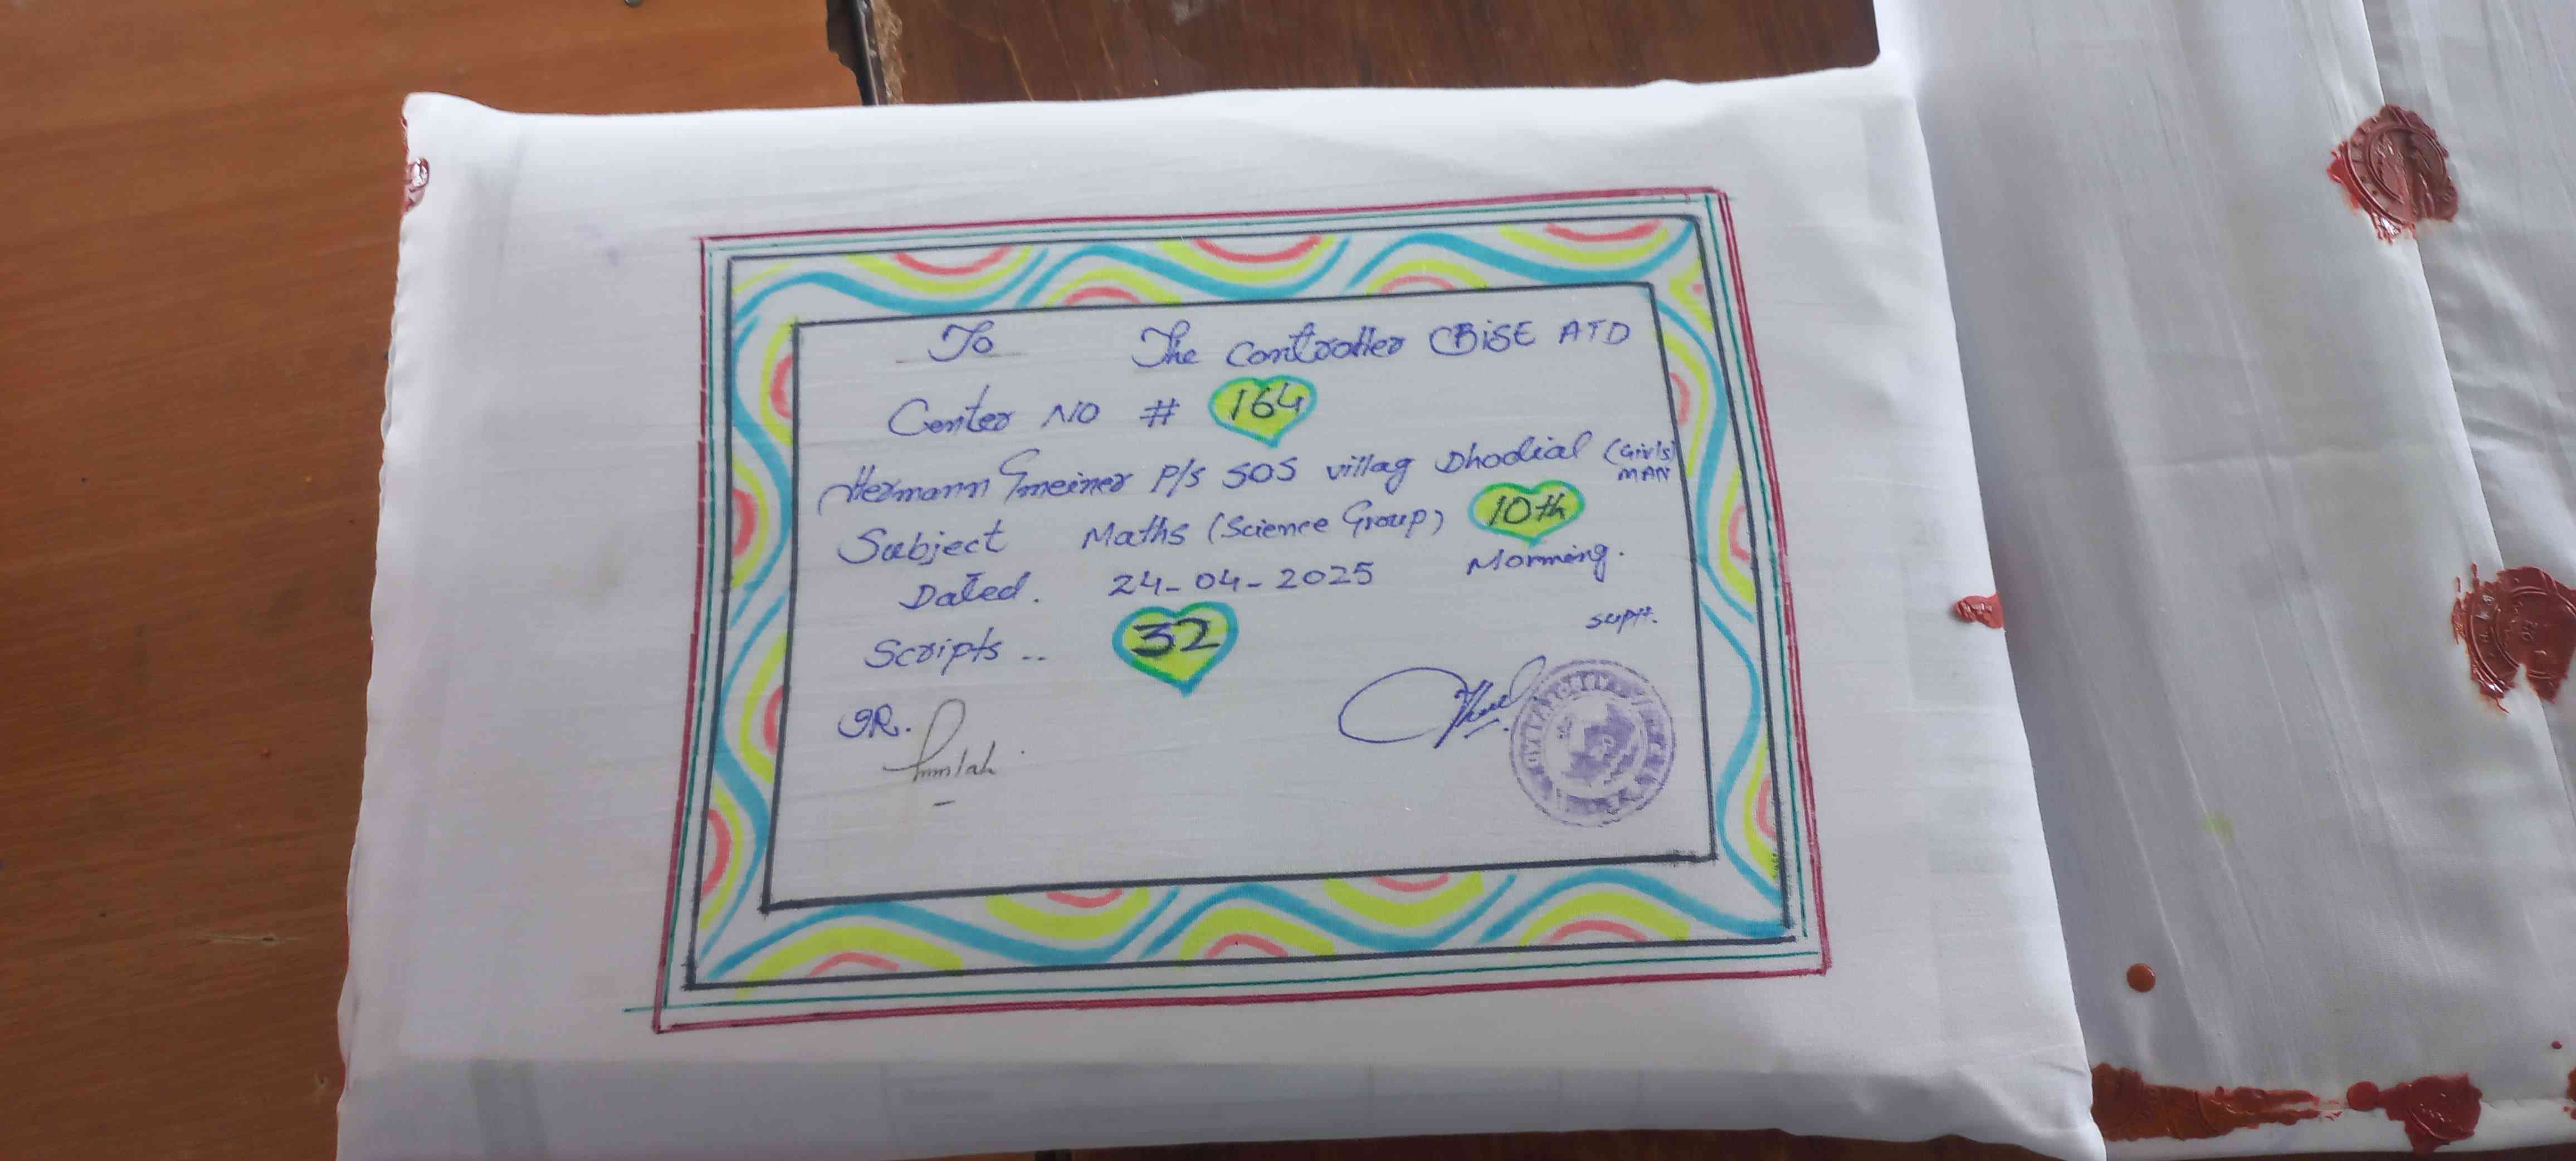 To The Controller CBiSE ATD
Center NO # 164
Hermann Gmeiner P/S SOS villag Dhodial (Girls) MAN
Subject Maths (Science Group) 10th
Dated. 24-04-2025 Morning.
Scripts .. 32
supt.